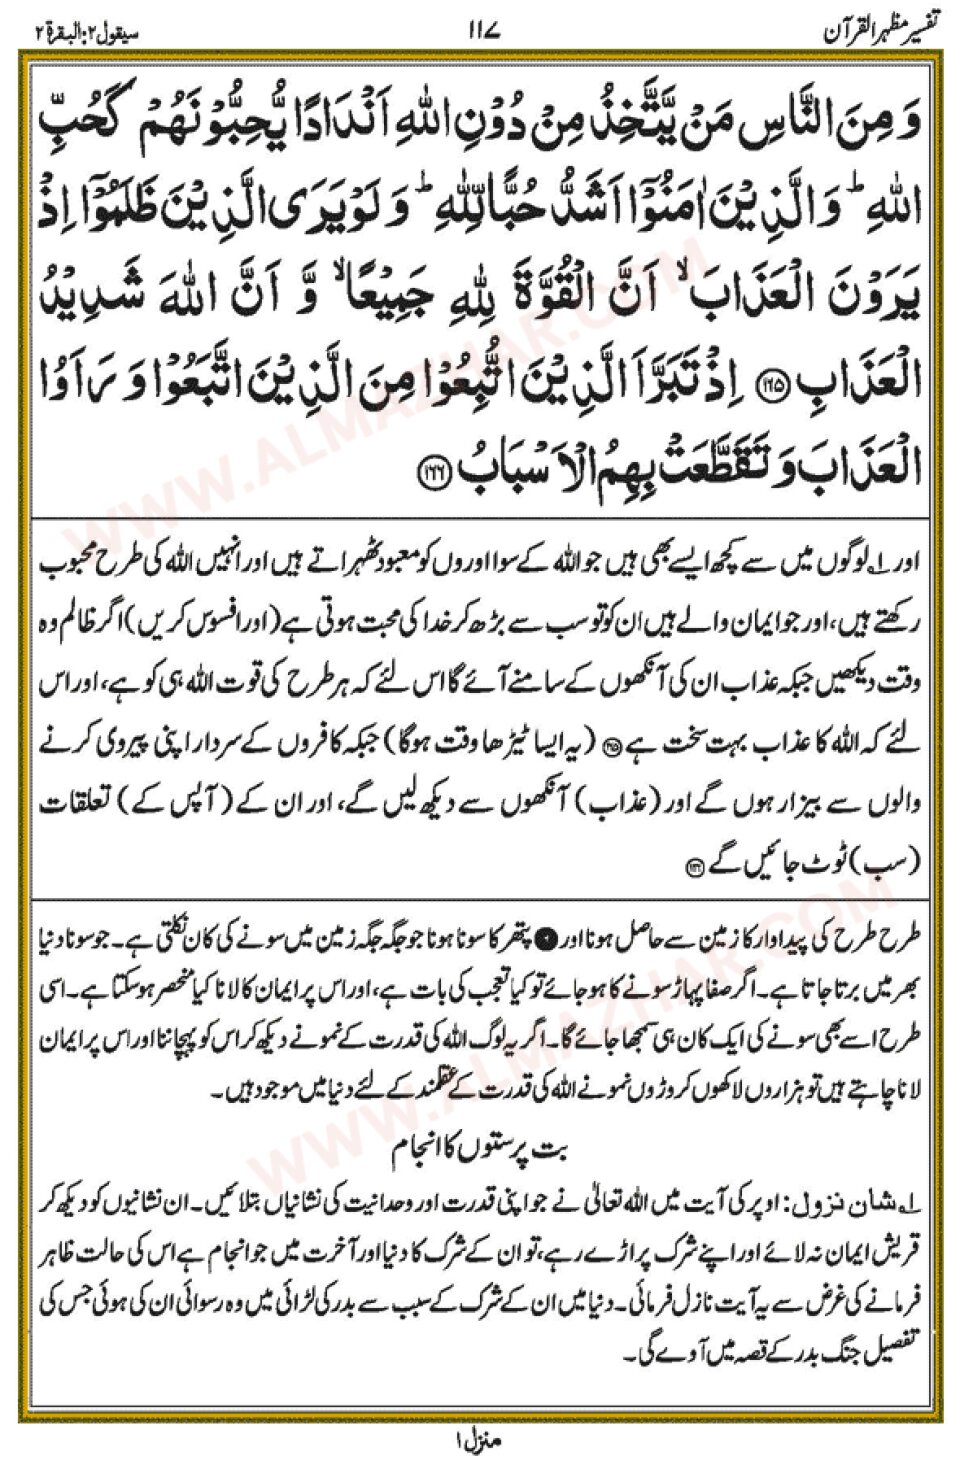 تفسیر مظہر القرآن ۱۱۷ سیقول۲: البقرة ۲
وَمِنَ النَّاسِ مَنْ يَّتَّخِذُ مِنْ دُوْنِ اللّٰهِ اَنْدَادًا يُّحِبُّوْنَهُمْ كَحُبِّ
اللّٰهِ ؕ وَالَّذِيْنَ اٰمَنُوْۤا اَشَدُّ حُبًّا لِّلّٰهِ ؕ وَلَوْ يَرَى الَّذِيْنَ ظَلَمُوْۤا اِذْ
يَرَوْنَ الْعَذَابَ ۙ اَنَّ الْقُوَّةَ لِلّٰهِ جَمِيْعًا ۙ وَّ اَنَّ اللّٰهَ شَدِيْدُ
الْعَذَابِ ﴿۱۶۵﴾ اِذْ تَبَرَّاَ الَّذِيْنَ اتُّبِعُوْا مِنَ الَّذِيْنَ اتَّبَعُوْا وَ رَاَوُا
الْعَذَابَ وَ تَقَطَّعَتْ بِهِمُ الْاَسْبَابُ ﴿۱۶۶﴾
اور ۱؎ لوگوں میں سے کچھ ایسے بھی ہیں جو اللہ کے سوا اوروں کو معبود ٹھہراتے ہیں اور انہیں اللہ کی طرح محبوب
رکھتے ہیں، اور جو ایمان والے ہیں ان کو تو سب سے بڑھ کر خدا کی محبت ہوتی ہے (اور افسوس کریں) اگر ظالم وہ
وقت دیکھیں جبکہ عذاب ان کی آنکھوں کے سامنے آئے گا اس لئے کہ ہر طرح کی قوت اللہ ہی کو ہے، اور اس
لئے کہ اللہ کا عذاب بہت سخت ہے ﴿۱۶۵﴾ (یہ ایسا ٹیڑھا وقت ہوگا) جبکہ کافروں کے سردار اپنی پیروی کرنے
والوں سے بیزار ہوں گے اور (عذاب) آنکھوں سے دیکھ لیں گے، اور ان کے (آپس کے) تعلقات
(سب) ٹوٹ جائیں گے ﴿۱۶۶﴾
طرح طرح کی پیداوار کا زمین سے حاصل ہونا اور پتھر کا سونا ہونا جو جگہ جگہ زمین میں سونے کی کان نکلتی ہے۔ جو سونا دنیا
بھر میں برتا جاتا ہے۔ اگر صفا پہاڑ سونے کا ہو جائے تو کیا تعجب کی بات ہے، اور اس پر ایمان کا لانا کیا منحصر ہو سکتا ہے۔ اسی
طرح اسے بھی سونے کی ایک کان ہی سمجھا جائے گا۔ اگر یہ لوگ اللہ کی قدرت کے نمونے دیکھ کر اس کو پہچاننا اور اس پر ایمان
لانا چاہتے ہیں تو ہزاروں لاکھوں کروڑوں نمونے اللہ کی قدرت کے عقلمند کے لئے دنیا میں موجود ہیں۔
بت پرستوں کا انجام
۱؎ شان نزول: اوپر کی آیت میں اللہ تعالیٰ نے جو اپنی قدرت اور وحدانیت کی نشانیاں بتلائیں۔ ان نشانیوں کو دیکھ کر
قریش ایمان نہ لائے اور اپنے شرک پر اڑے رہے، تو ان کے شرک کا دنیا اور آخرت میں جو انجام ہے اس کی حالت ظاہر
فرمانے کی غرض سے یہ آیت نازل فرمائی۔ دنیا میں ان کے شرک کے سبب سے بدر کی لڑائی میں وہ رسوائی ان کی ہوئی جس کی
تفصیل جنگ بدر کے قصہ میں آوے گی۔
منزل ۱
WWW.ALMAZHAR.COM
WWW.ALMAZHAR.COM